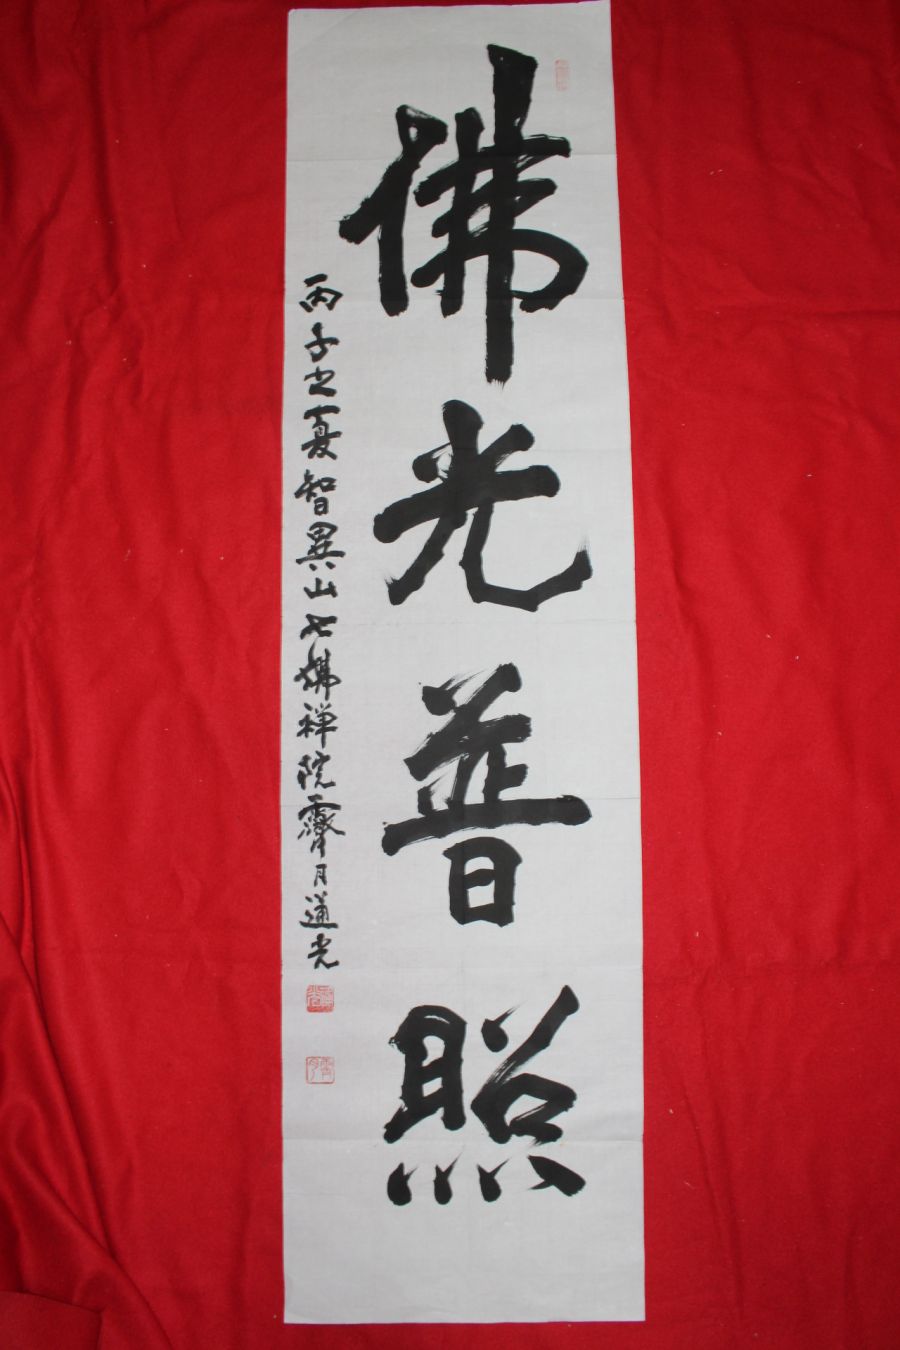 佛光普照
丙子之夏智異山七佛禅院霽月通光